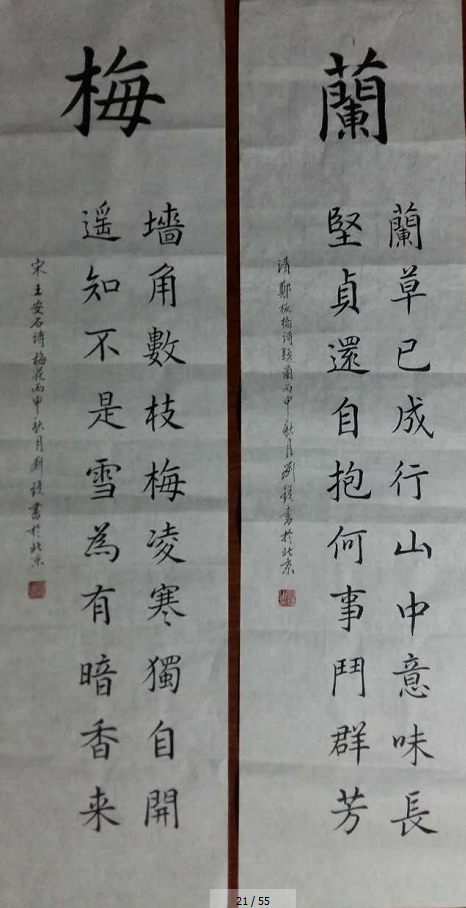 蘭
蘭草已成行山中意味長
堅貞還自抱何事鬥群芳
清鄭板橋詩題蘭丙申秋月劉鋑書於北京
梅
墻角數枝梅凌寒獨自開
遥知不是雪為有暗香来
宋王安石詩梅花丙申秋月劉書於北京
21 / 55